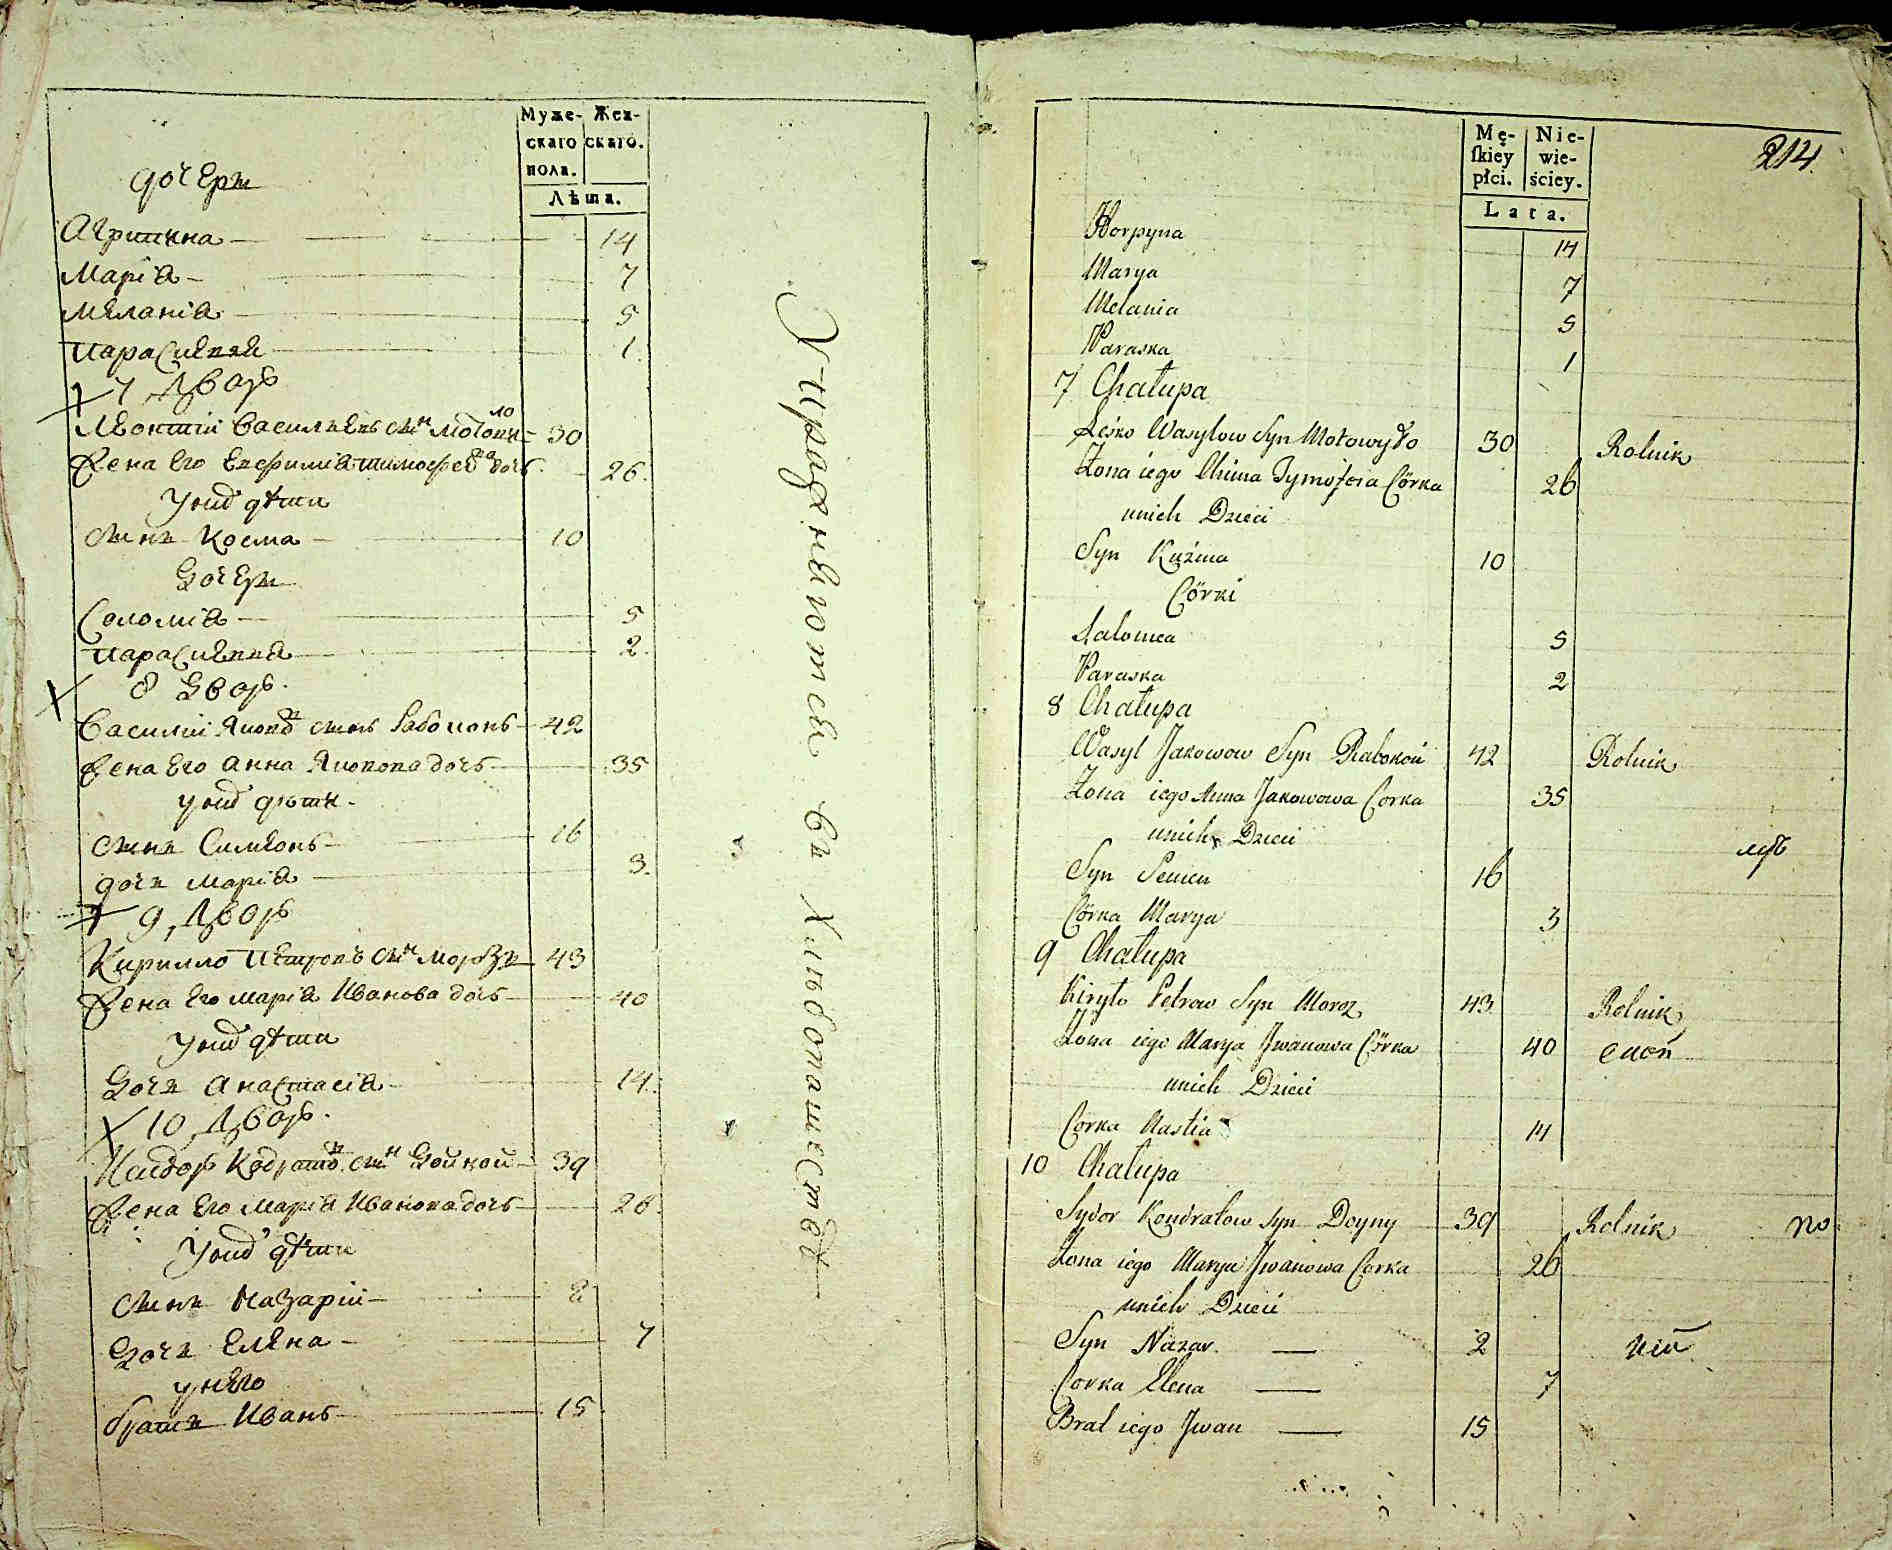 Муже-
скаго
пола.
Жен-
скаго.
Лѣта.
дочери
Агрипина 14
Марія 7
Меланія 5
Параскевія 1
7 Дворъ
Леонтій Васильевъ сынъ Мотови
ло 30
Жена его Евфимія Тимофеева дочь 26.
у них дѣти
сынъ Косма 10
Дочери
Соломія 5
Параскевія 2.
8 Дворъ.
Василій Яковъ сынъ Рабоконь 42
Жена его Анна Яковова дочь 35
у них дѣти
сынъ Симеонъ 16
дочь Марія 3.
9, Дворъ
Кирилло Петровъ сынъ Морозъ 43
Жена его Марія Иванова дочь 40
у них дѣти
Дочь Анастасія 14.
10, Дворъ.
Исидоръ Кодратов сынъ Дойной 39
Жена его Марія Иванова дочь 26.
у них дѣти
сынъ Назарій 2
Дочь Елена 7
у него
братъ Иванъ 15
Упражняются въ Хлѣбопашествѣ
214.
Mę-
ſkiey
płci.
Nie-
wie-
ściey.
Lata.
Horpyna 14
Marya 7
Melania 5
Paraska 1
7 Chałupa
Leśko Wasylow Syn Motowyło 30 Rolnik
Żona iego Chima Tymofeia Córka 26
unich Dzieci
Syn Kuźma 10
Córki
Salomea 5
Paraska 2
8 Chałupa
Wasyl Jakowow Syn Rabokoń 42 Rolnik
Żona iego Anna Jakowowa Corka 35
unich Dzieci
Syn Semen 16
Córka Marya 3
9 Chałupa
Kiryło Petrow Syn Moroz 43 Rolnik
Żona iego Marya Jwanowa Córka 40
unich Dzieci
Corka Nastia 14
10 Chałupa
Sydor Kondratow Syn Deyny 39 Rolnik no
Żona iego Marya Jwanowa Corka 26
unich Dzieci
Syn Nazar 2
Corka Elena 7
Brat iego Jwan 15